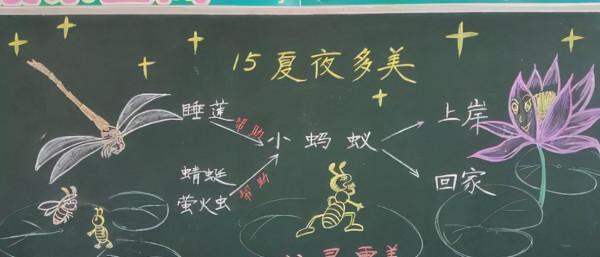 15 夏夜多美
睡莲
帮助
小蚂蚁
上岸
蜻蜓
萤火虫
帮助
回家